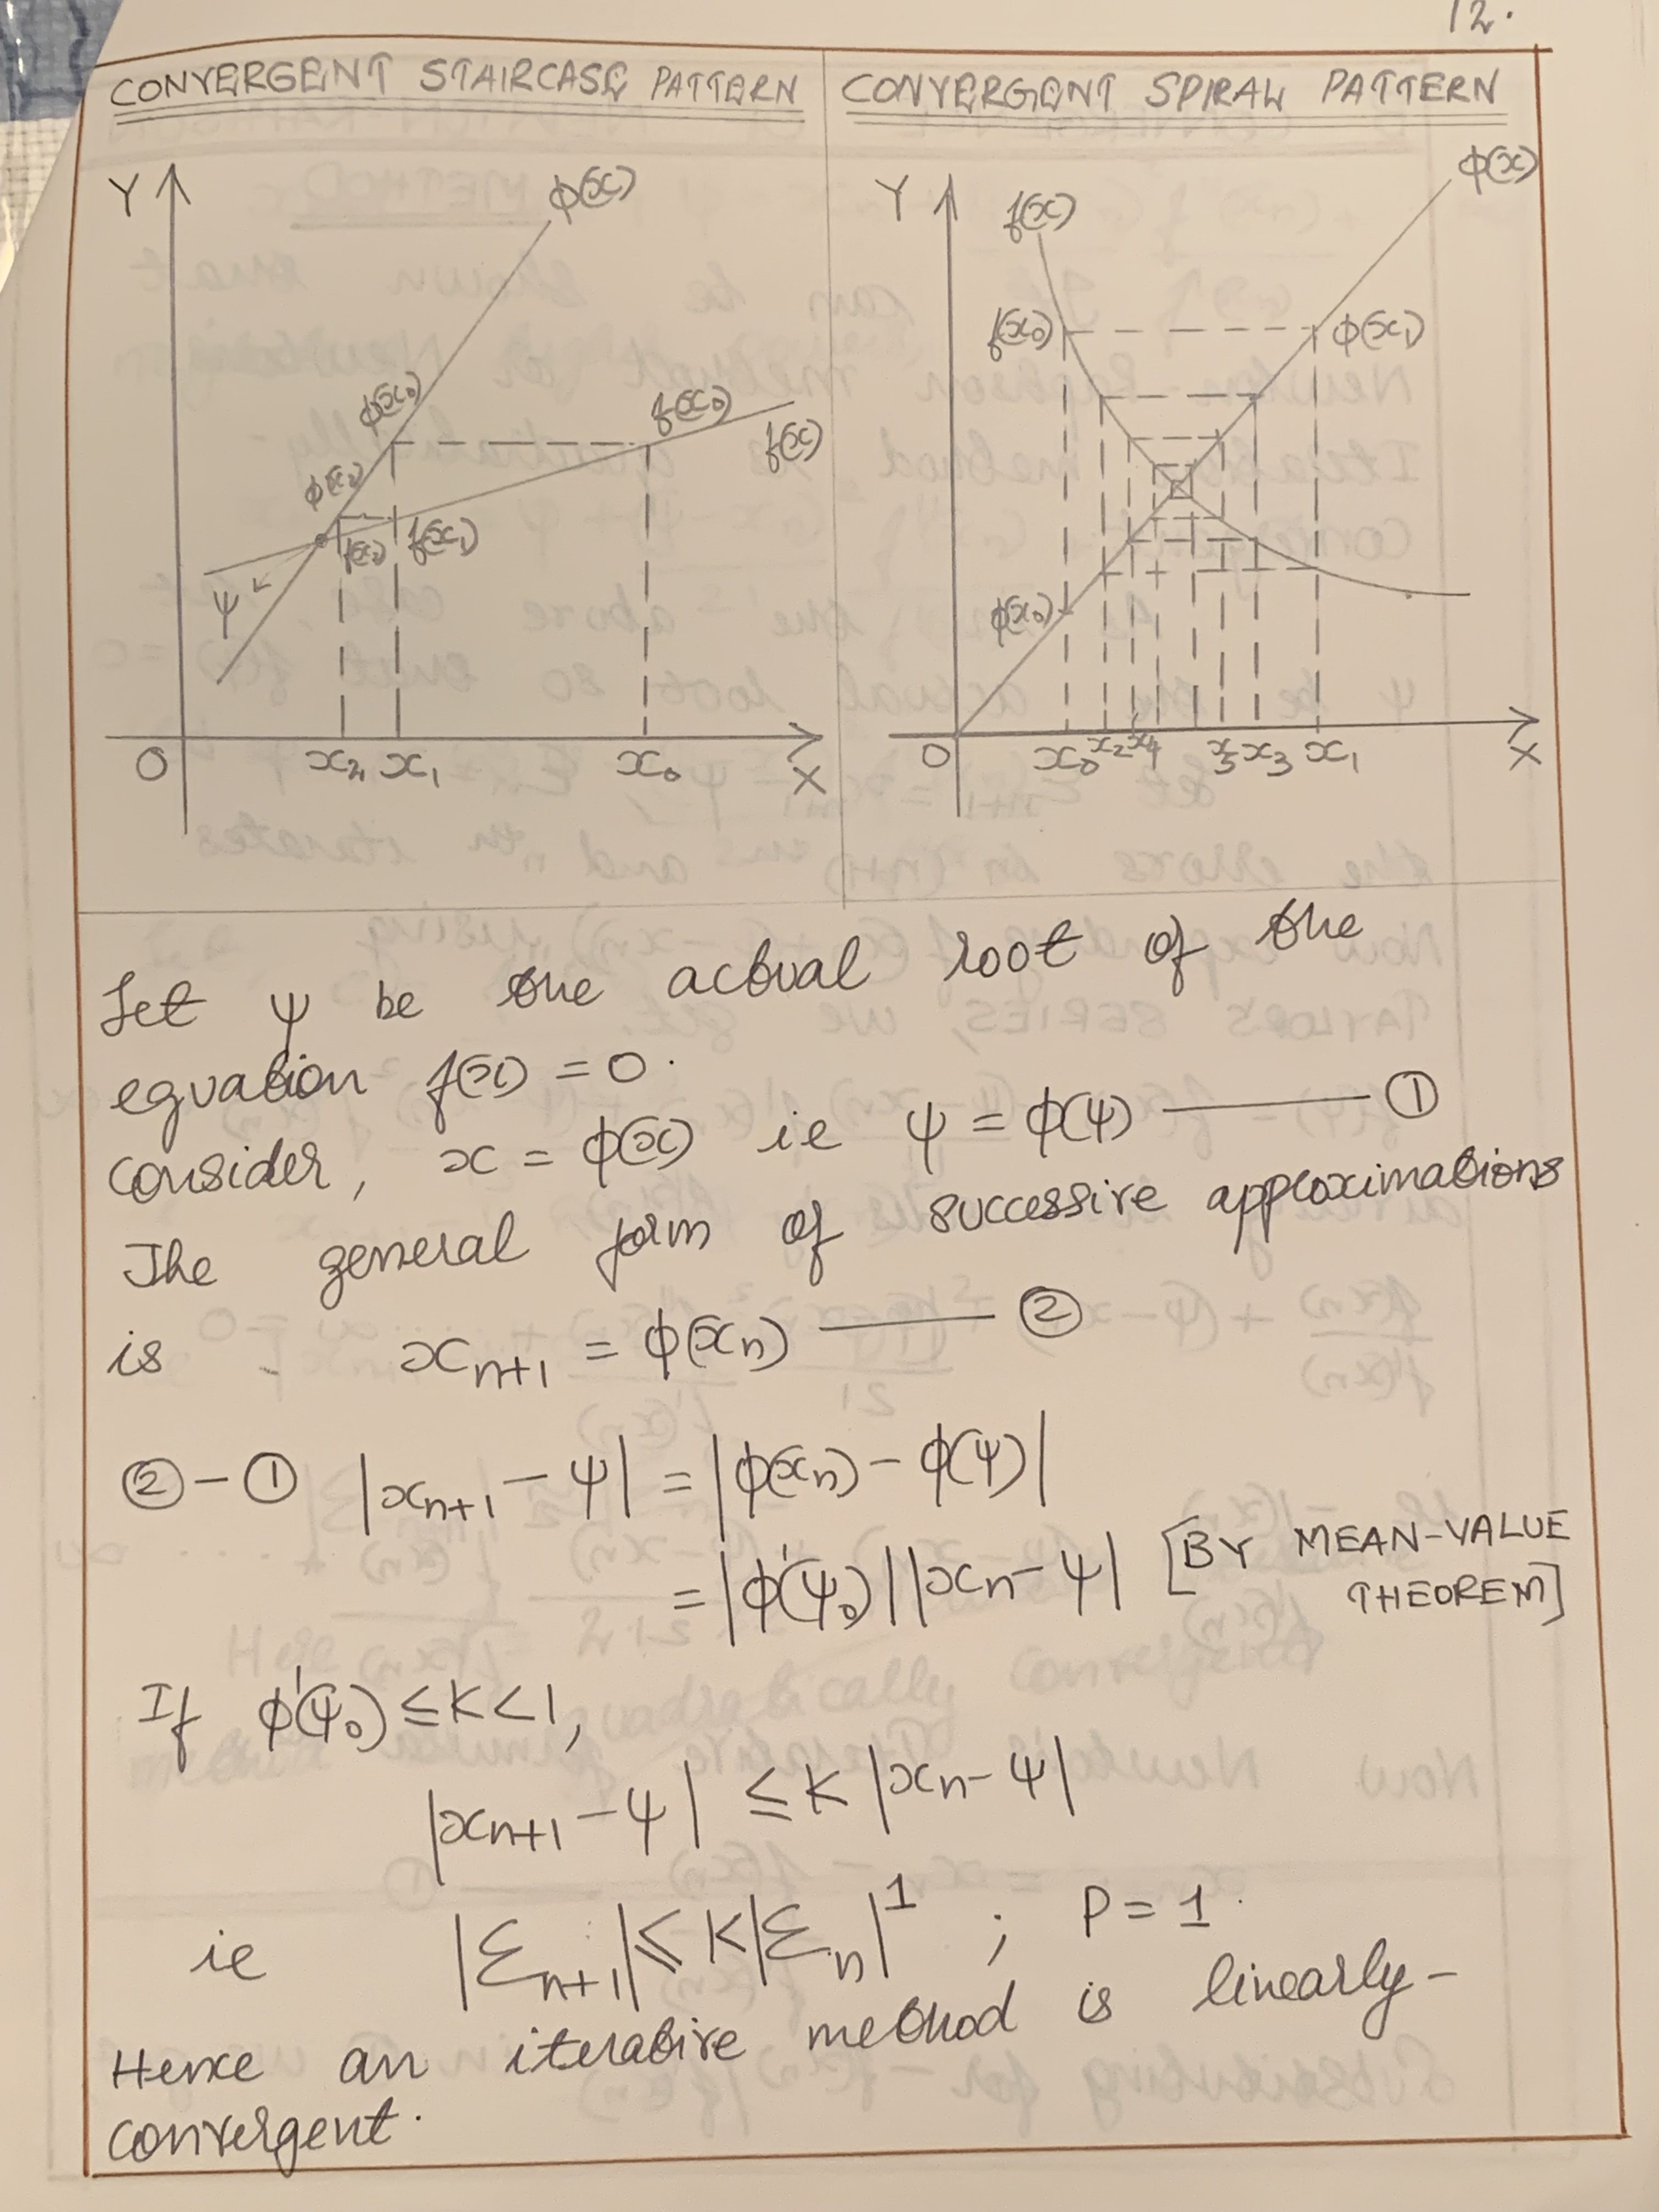 12.
CONVERGENT STAIRCASE PATTERN
Y
ϕ(x)
ϕ(x₀)
f(x₀)
f(x)
f(x₁)
ψ
O
x₂ x₁ x₀
X
CONVERGENT SPIRAL PATTERN
Y
f(x)
ϕ(x)
f(x₀)
ϕ(x₁)
ϕ(x₀)
O
x₀ x₂ x₄ x₅ x₃ x₁
X
Let ψ be the actual root of the
equation f(x) = 0.
consider, x = ϕ(x) ie ψ = ϕ(ψ) —— ①
The general form of successive approximations
is xₙ₊₁ = ϕ(xₙ) —— ②
② - ① |xₙ₊₁ - ψ| = |ϕ(xₙ) - ϕ(ψ)|
= |ϕ'(ψ₀)| |xₙ - ψ| [BY MEAN-VALUE
THEOREM]
If ϕ'(ψ₀) ≤ K < 1,
|xₙ₊₁ - ψ| ≤ K |xₙ - ψ|
ie |Ɛₙ₊₁| ≤ K|Ɛₙ|¹ ; P = 1.
Hence an iterative method is linearly-
convergent.